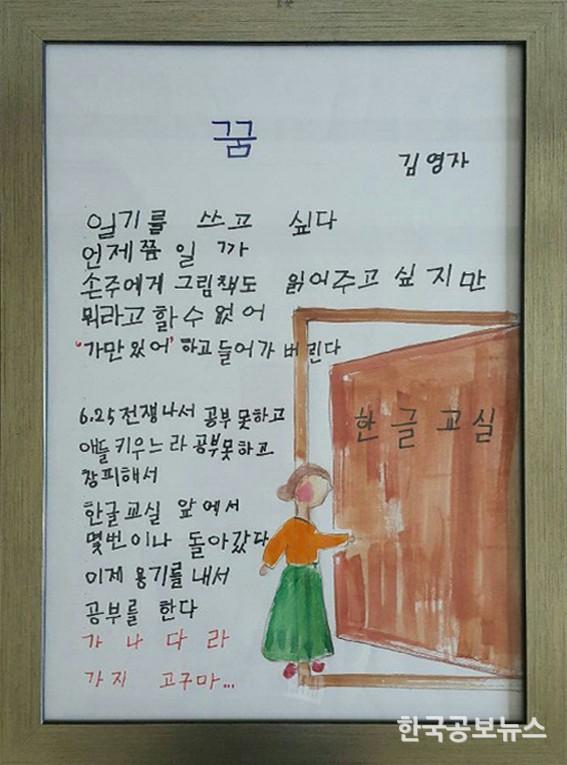 꿈
김영자
일기를 쓰고 싶다
언제쯤 일 까
손주에게 그림책도 읽어주고 싶지만
뭐라고 할 수 없어
"가만있어" 하고 들어가 버린다
6.25 전쟁나서 공부 못하고
애들 키우느라 공부못하고
창피해서
한글교실 앞에서
몇번이나 돌아갔다
이제 용기를 내서
공부를 한다
가 나 다 라
가지 고구마...
한글교실
한국공보뉴스